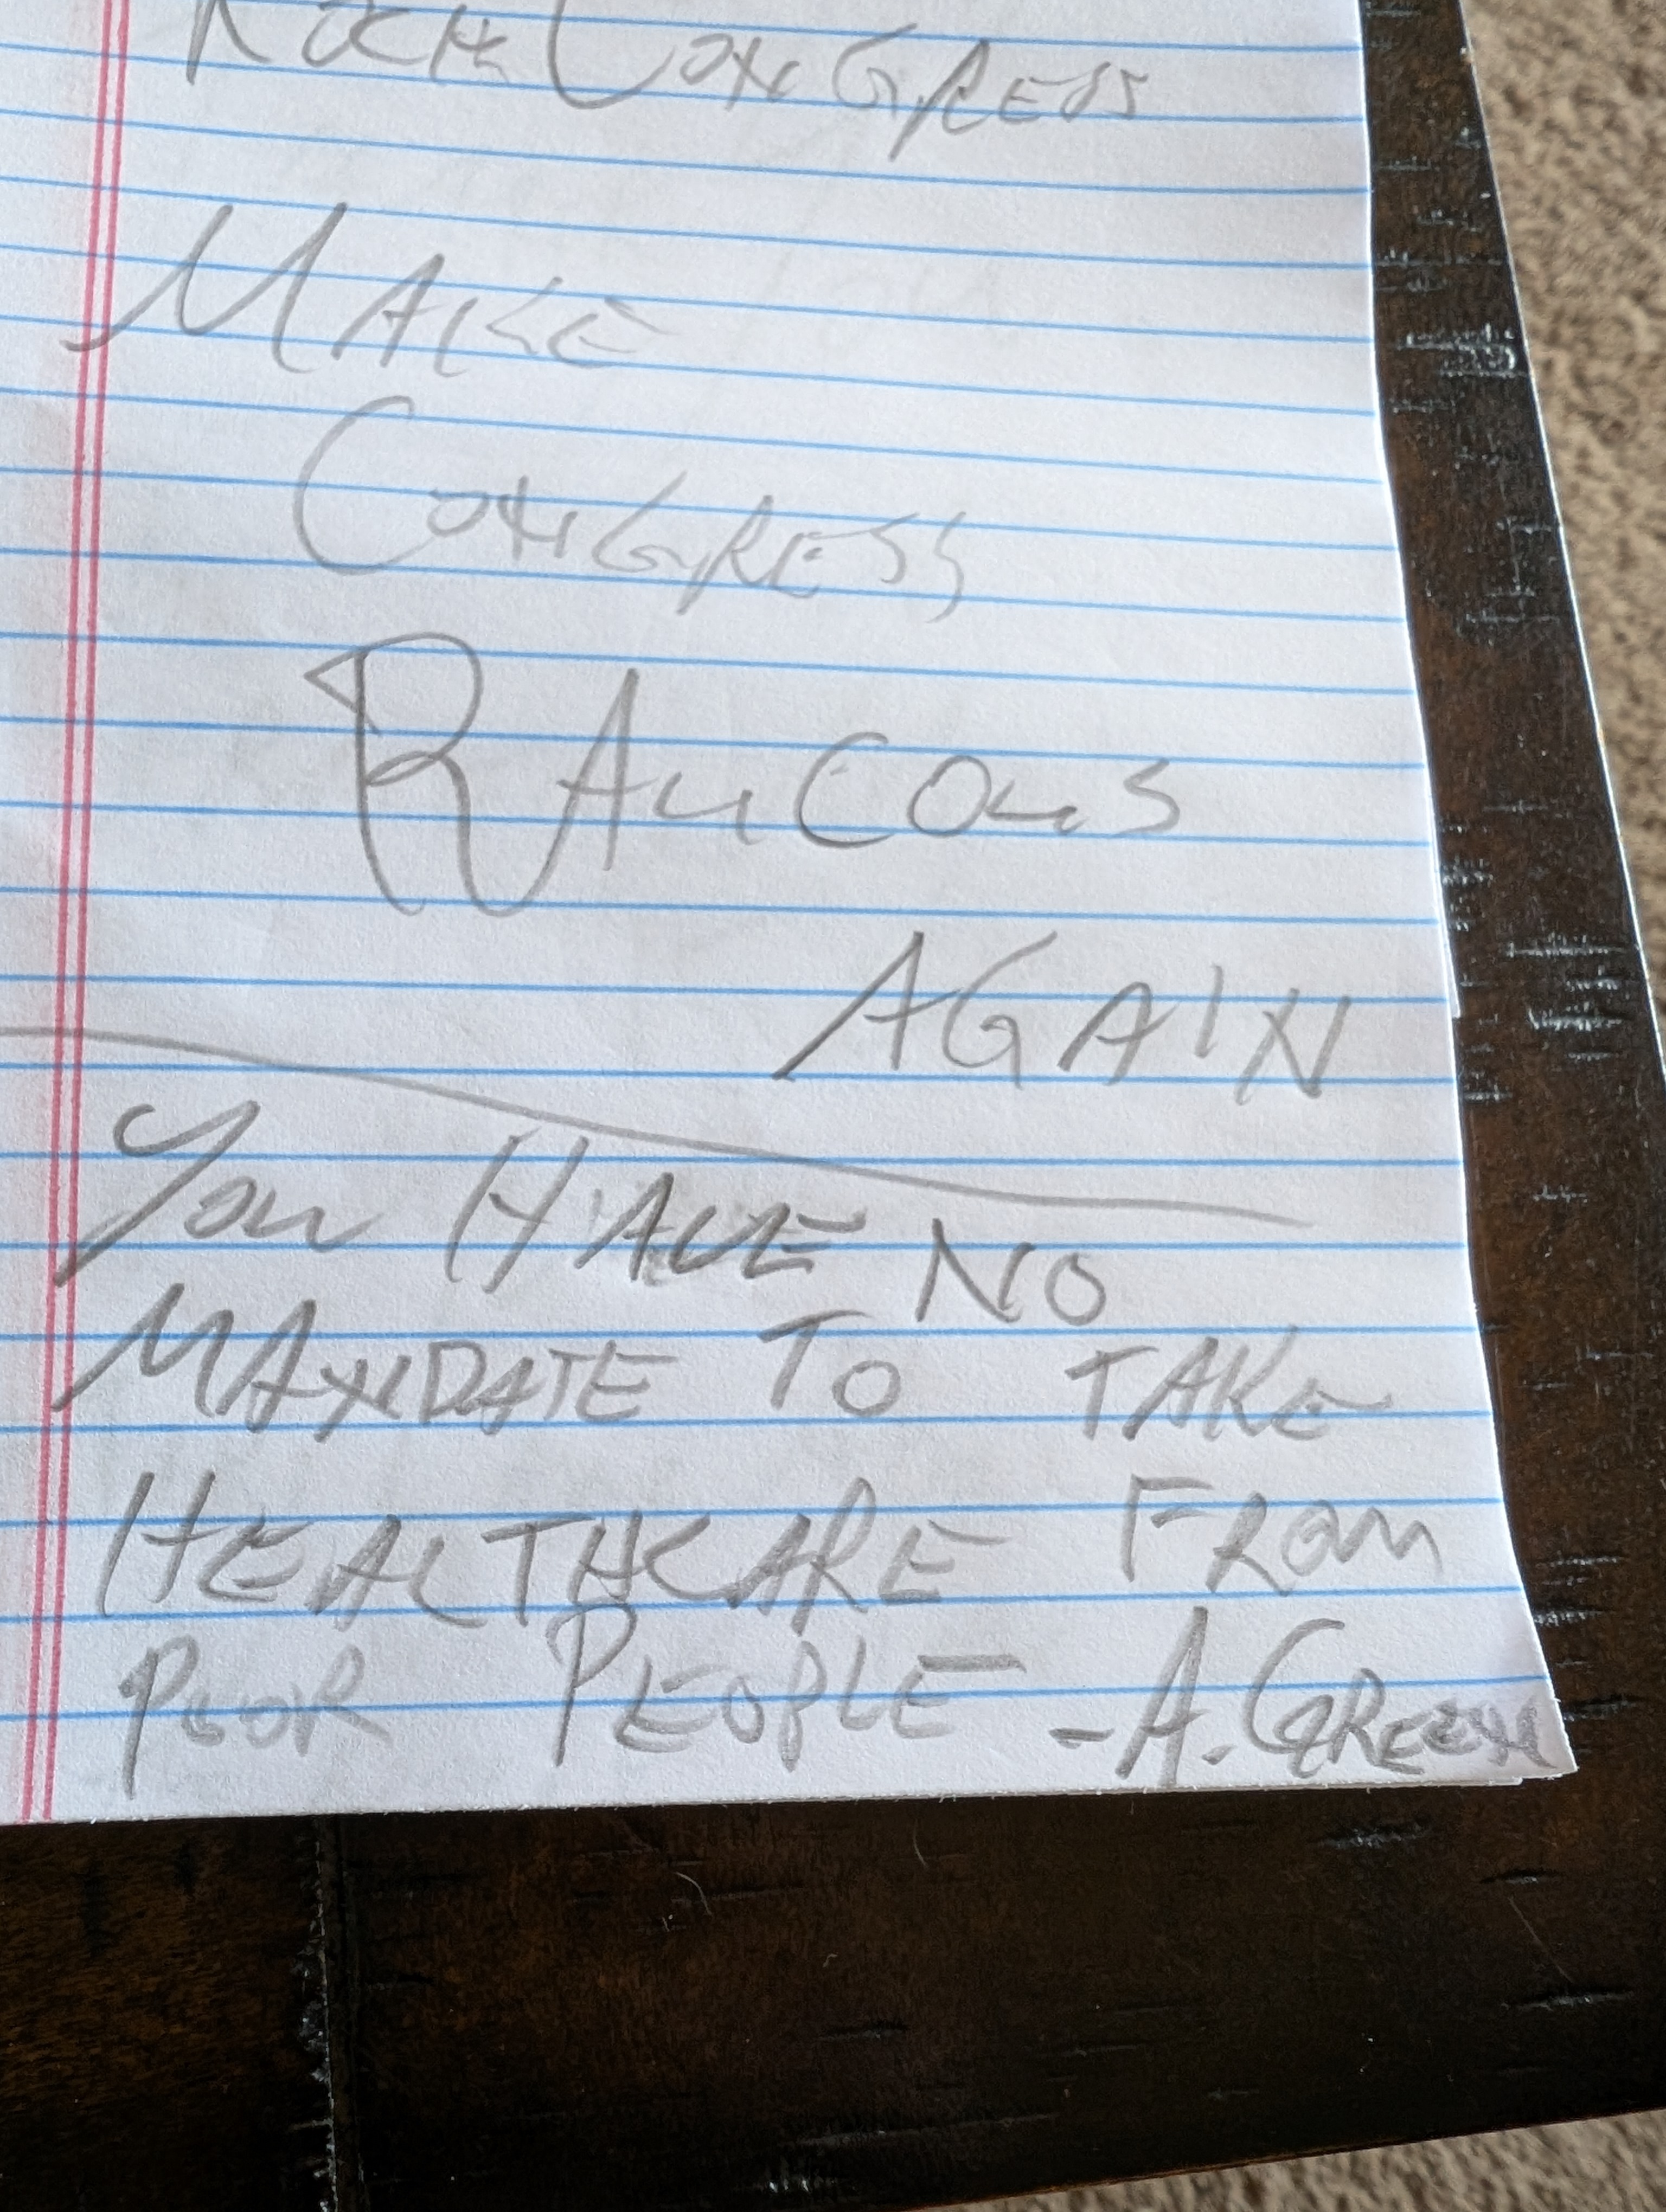 ROCK CONGRESS
MAKE
CONGRESS
RAUCOUS
AGAIN
YOU HAVE NO
MANDATE TO TAKE
HEALTHCARE FROM
POOR PEOPLE - A. GREEN